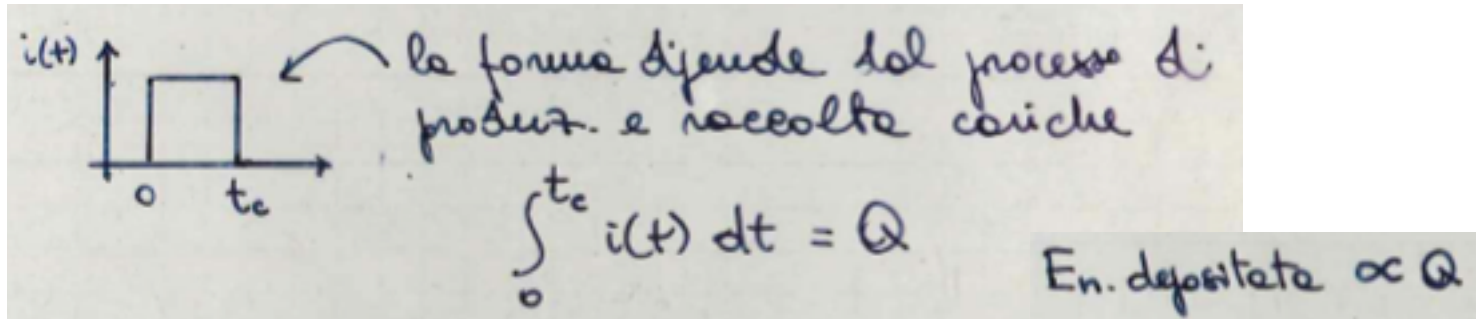 i(t)
la forma dipende dal processo di
produz. e raccolta cariche
0 tc
∫₀^tc i(t) dt = Q
En. depositata ∝ Q